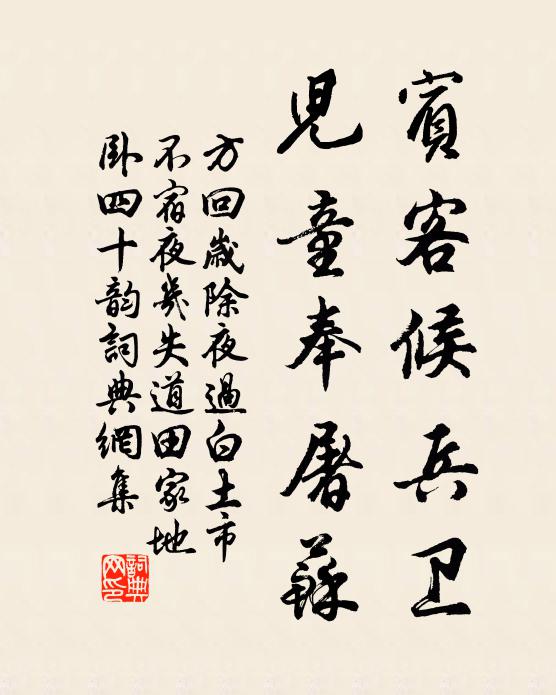 賓客候兵卫
児童奉屠蘇
方回歲除夜過白土市
不宿夜幾失道田家地
臥四十韵詞典網集
詞典网印